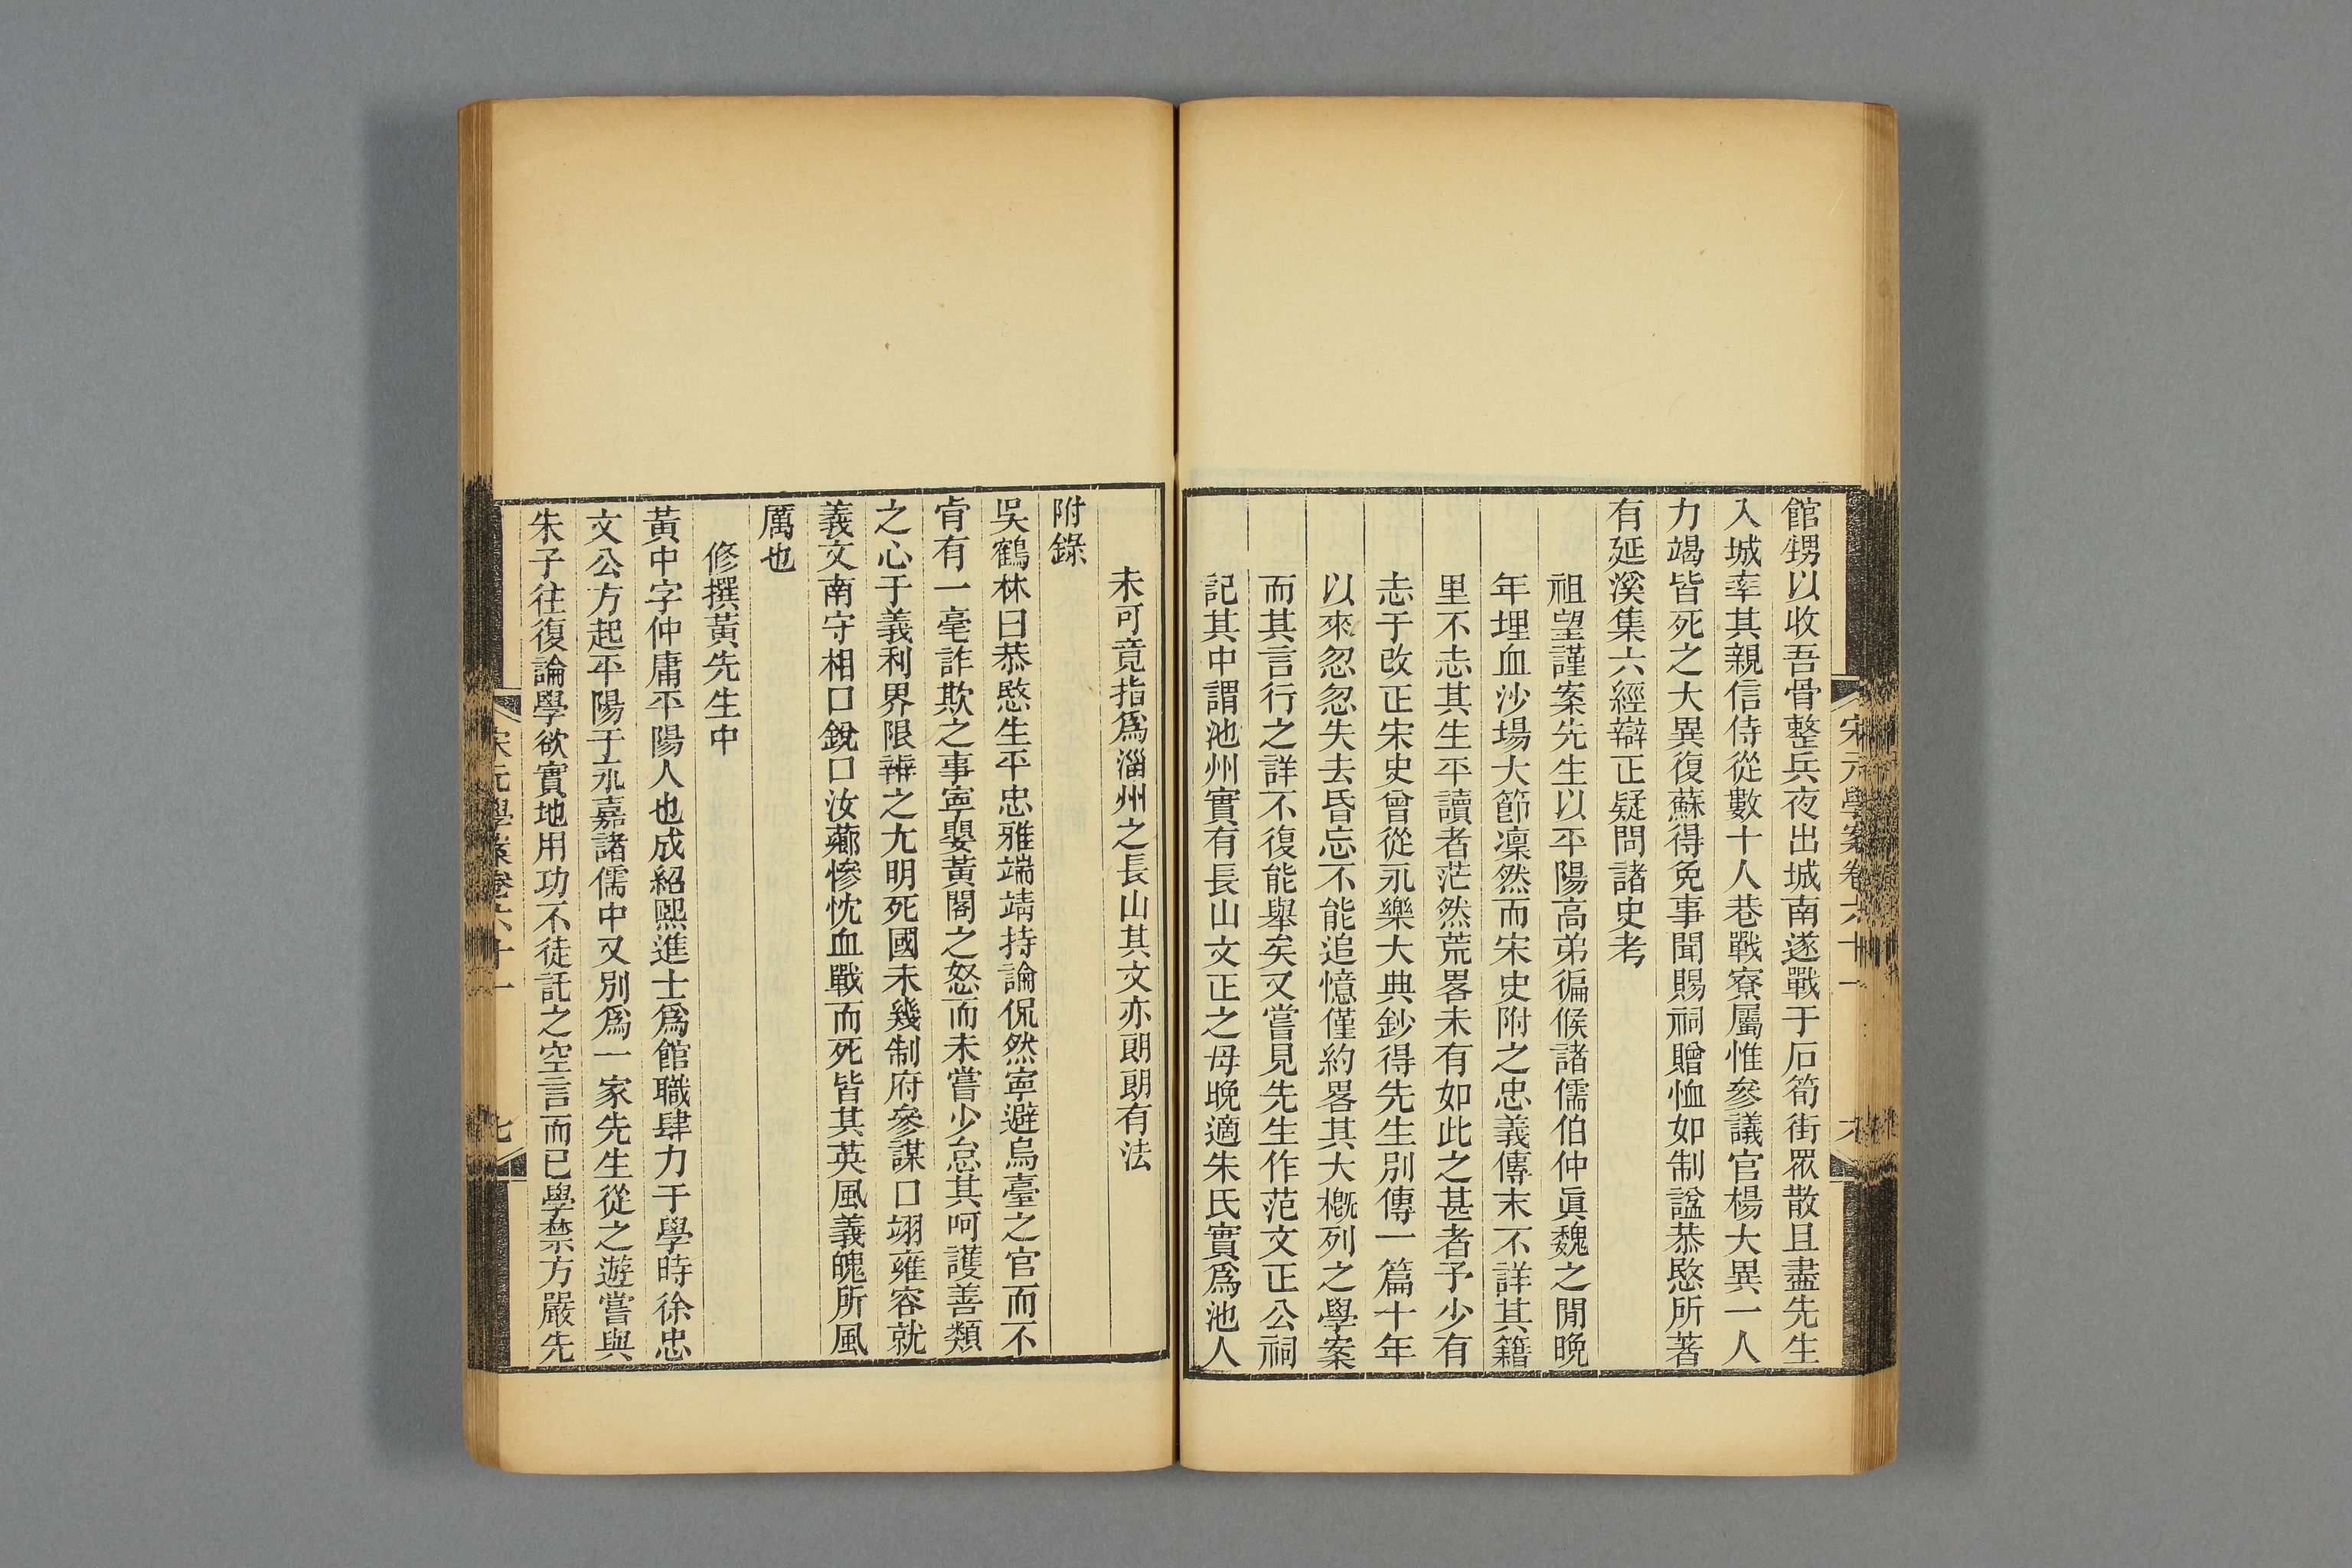 宋元學案卷六十一
六
館甥以收吾骨整兵夜出城南遂戰于石筍街眾散且盡先生
入城率其親信侍從數十人巷戰寮屬惟參議官楊大異一人
力竭皆死之大異復蘇得免事聞賜祠贈恤如制諡恭愍所著
有延溪集六經辯正疑問諸史考
祖望謹案先生以平陽高弟徧候諸儒伯仲眞魏之閒晚
年埋血沙場大節凜然而宋史附之忠義傳末不詳其籍
里不志其生平讀者茫然荒畧未有如此之甚者予少有
志于改正宋史曾從永樂大典鈔得先生別傳一篇十年
以來忽忽失去昏忘不能追憶僅約畧其大槪列之學案
而其言行之詳不復能舉矣又嘗見先生作范文正公祠
記其中謂池州實有長山文正之母晚適朱氏實爲池人
未可竟指爲淄州之長山其文亦朗朗有法
附錄
吳鶴林曰恭愍生平忠雅端靖持論侃然寧避烏臺之官而不
肯有一毫詐欺之事寧嬰黃閣之怒而未嘗少怠其呵護善類
之心于義利界限辨之尤明死國未幾制府參謀口翊雍容就
義文南守相口銳口汝薌慘忱血戰而死皆其英風義魄所風
厲也
修撰黃先生中
黃中字仲庸平陽人也成紹熙進士爲館職肆力于學時徐忠
文公方起平陽于永嘉諸儒中又別爲一家先生從之遊嘗與
朱子往復論學欲實地用功不徒託之空言而已學禁方嚴先
宋元學案卷六十一
七